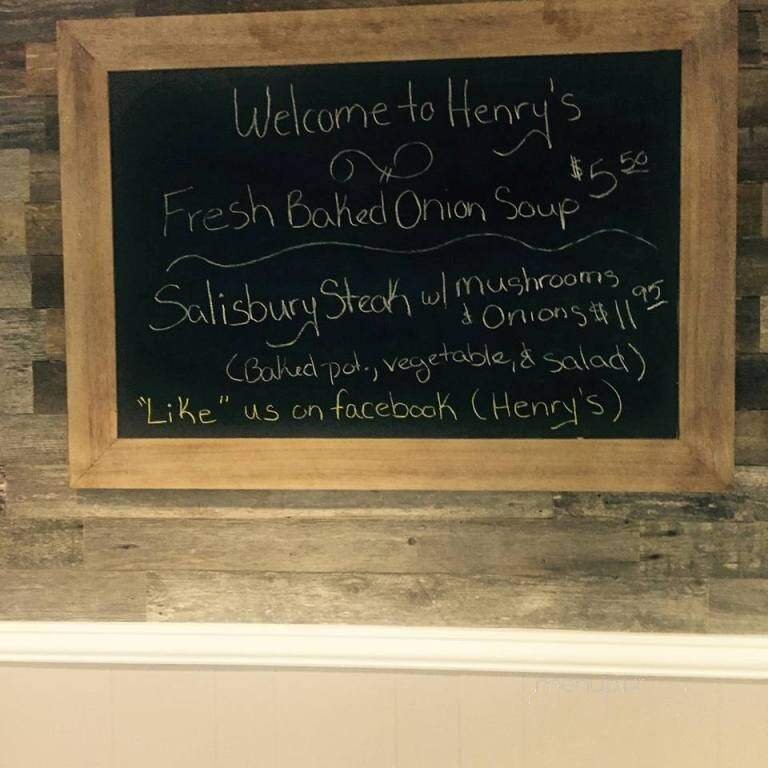 Welcome to Henry's
Fresh Baked Onion Soup $5.50
Salisbury Steak w/ mushrooms
& Onions $11.95
(Baked pot., vegetable, & salad)
"Like" us on facebook (Henry's)
menupix